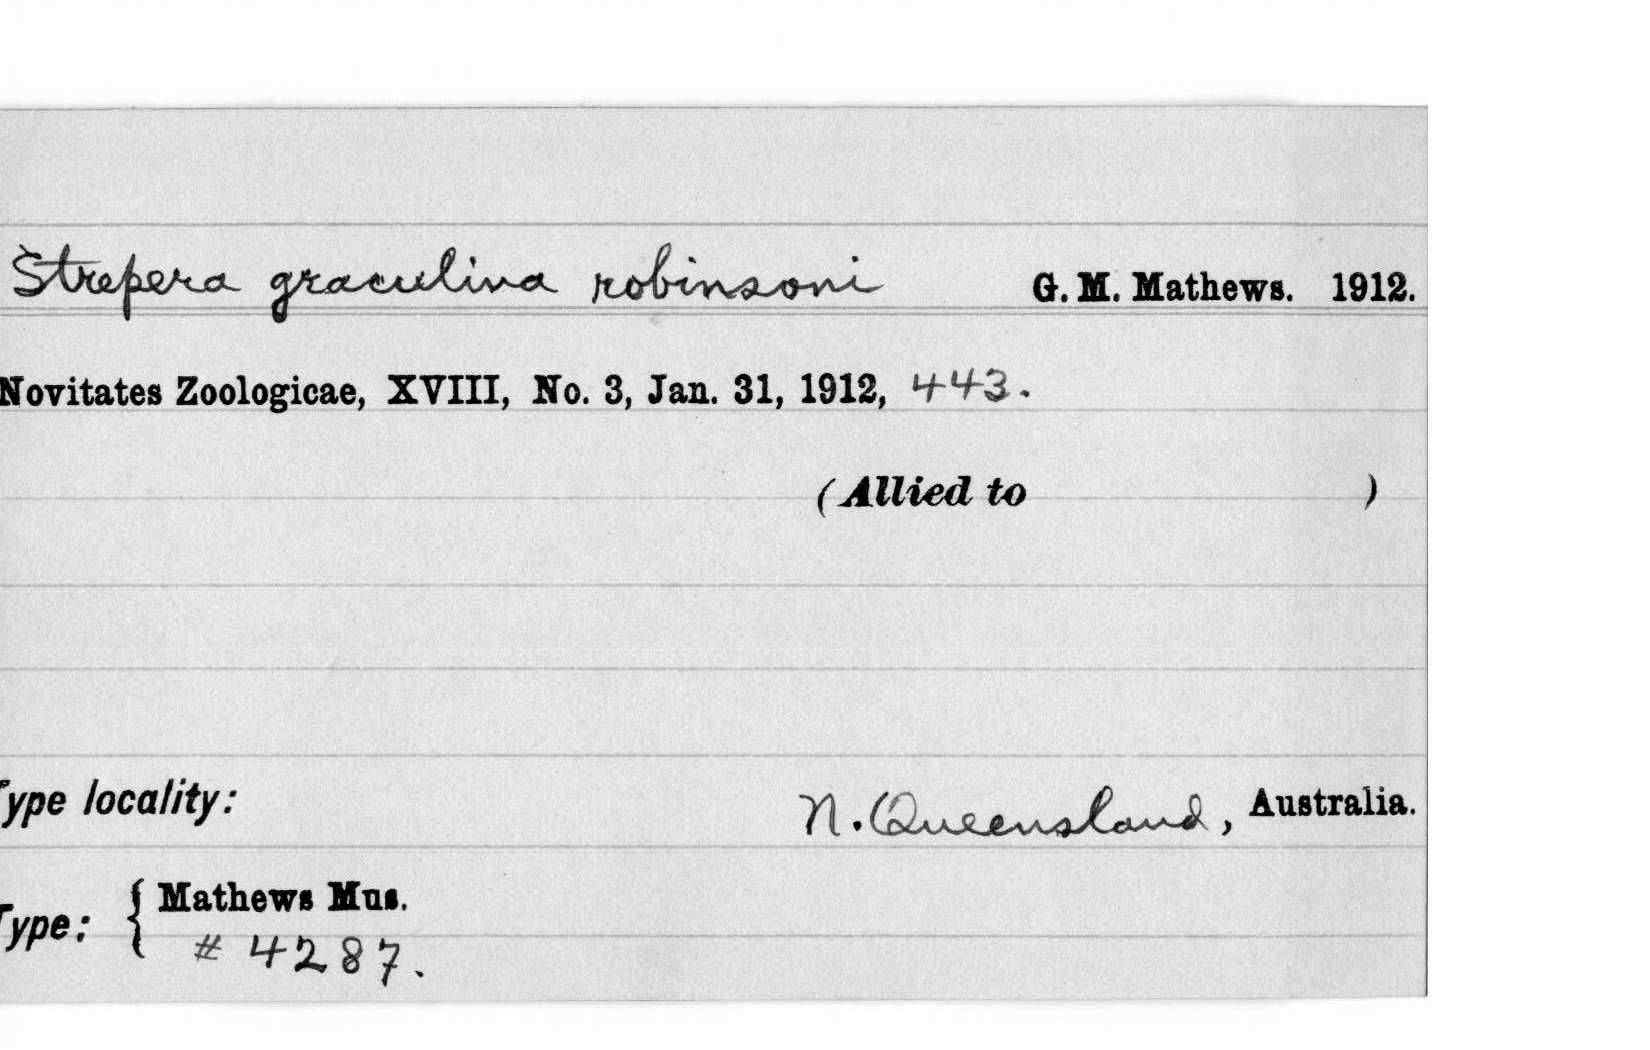 Strepera graculina robinsoni G. M. Mathews. 1912.
Novitates Zoologicae, XVIII, No. 3, Jan. 31, 1912, 443.
(Allied to )
Type locality: N. Queensland, Australia.
Type: { Mathews Mus.
# 4287.